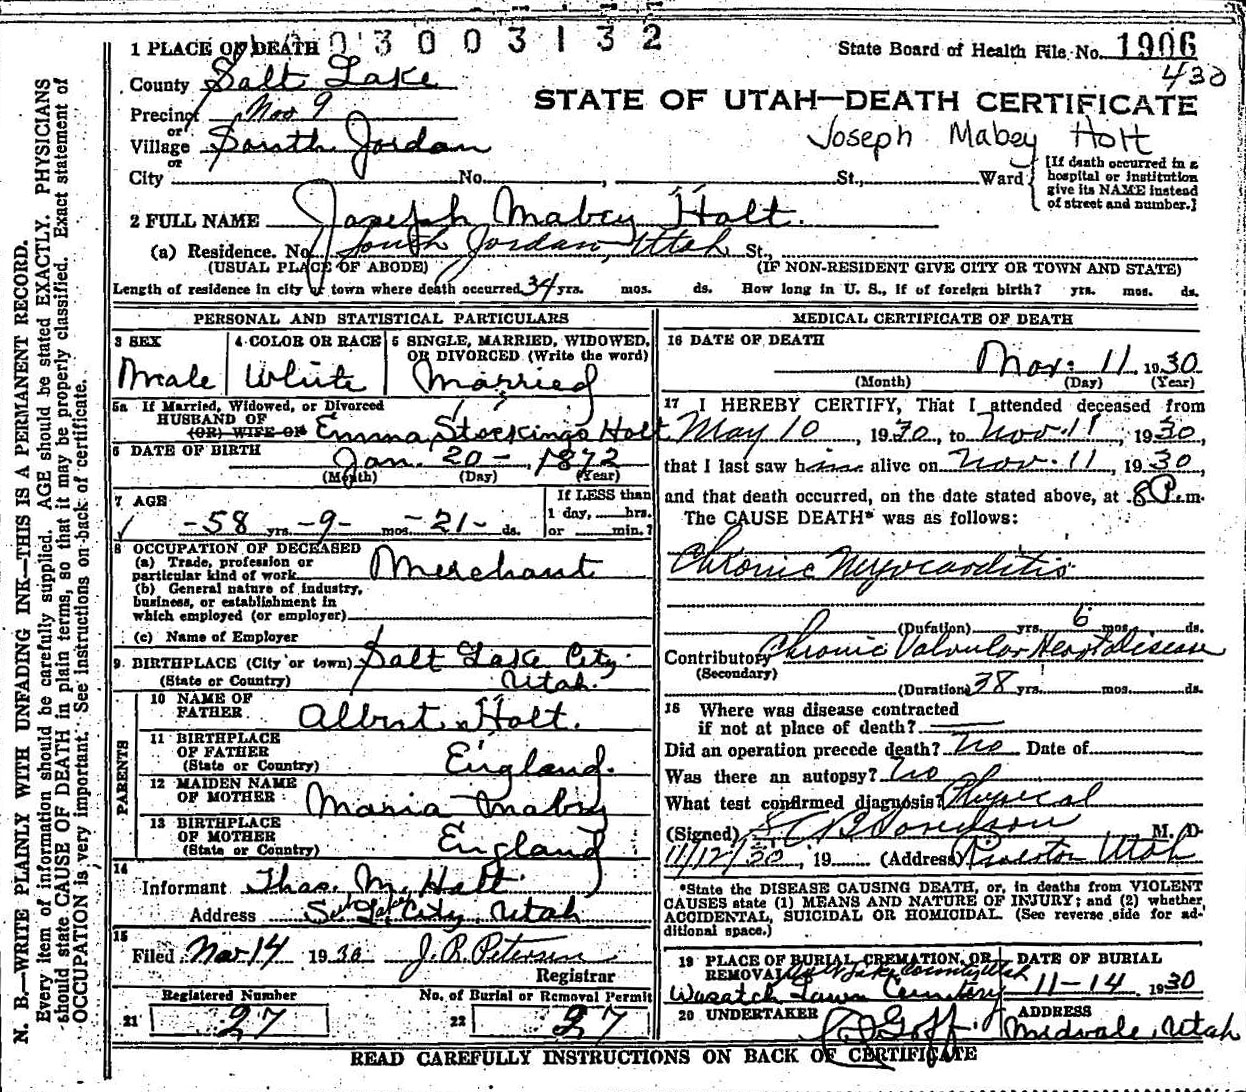 N. B.—WRITE PLAINLY WITH UNFADING INK—THIS IS A PERMANENT RECORD.
Every item of information should be carefully supplied. AGE should be stated EXACTLY. PHYSICIANS
should state CAUSE OF DEATH in plain terms, so that it may be properly classified. Exact statement of
OCCUPATION is very important. See instructions on back of certificate.
03003132
1 PLACE OF DEATH
State Board of Health File No. 1906
430
County Salt Lake
STATE OF UTAH—DEATH CERTIFICATE
Precinct No 9
or
Joseph Mabey Holt
Village South Jordan
or
City No. , St., Ward
[If death occurred in a
hospital or institution
give its NAME instead
of street and number.]
2 FULL NAME Joseph Mabey Holt.
(a) Residence. No. South Jordan, Utah St.,
(USUAL PLACE OF ABODE) (IF NON-RESIDENT GIVE CITY OR TOWN AND STATE)
Length of residence in city or town where death occurred 34 yrs. mos. ds. How long in U. S., if of foreign birth? yrs. mos. ds.
PERSONAL AND STATISTICAL PARTICULARS
3 SEX 4 COLOR OR RACE 5 SINGLE, MARRIED, WIDOWED,
OR DIVORCED (Write the word)
Male White Married
5a If Married, Widowed, or Divorced
HUSBAND OF
(OR) WIFE OF Emma Stocking Holt
6 DATE OF BIRTH Jan. 20 - , 1872
(Month) (Day) (Year)
7 AGE If LESS than
1 day, hrs.
-58 yrs -9- mos -21- ds. or min.?
8 OCCUPATION OF DECEASED
(a) Trade, profession or
particular kind of work Merchant
(b) General nature of industry,
business, or establishment in
which employed (or employer)
(c) Name of Employer
9 BIRTHPLACE (City or town) Salt Lake City
(State or Country) Utah.
PARENTS
10 NAME OF
FATHER Albert Holt.
11 BIRTHPLACE
OF FATHER
(State or Country) England.
12 MAIDEN NAME
OF MOTHER Maria Mabey
13 BIRTHPLACE
OF MOTHER
(State or Country) England
14
Informant Thos. M. Holt
Address Salt Lake City, Utah
15
Filed Nov 14 1930 J. R. Peterson
Registrar
Registered Number No. of Burial or Removal Permit
21 27 22 27
MEDICAL CERTIFICATE OF DEATH
16 DATE OF DEATH
Nov. 11 1930
(Month) (Day) (Year)
17 I HEREBY CERTIFY, That I attended deceased from
May 10, 1930, to Nov. 11, 1930,
that I last saw him alive on Nov. 11, 1930,
and that death occurred, on the date stated above, at 8 P.m.
The CAUSE DEATH* was as follows:
Chronic Myocarditis
(Dufation) yrs. 6 mos. ds.
Contributory Chronic Valvular Heart disease
(Secondary)
(Duration) 38 yrs. mos. ds.
18 Where was disease contracted
if not at place of death?
Did an operation precede death? No Date of
Was there an autopsy? No
What test confirmed diagnosis? Physical
(Signed) M. D.
11/12/30, 19 (Address) Utah
*State the DISEASE CAUSING DEATH, or, in deaths from VIOLENT
CAUSES state (1) MEANS AND NATURE OF INJURY; and (2) whether
ACCIDENTAL, SUICIDAL OR HOMICIDAL. (See reverse side for ad-
ditional space.)
19 PLACE OF BURIAL, CREMATION, OR DATE OF BURIAL
REMOVAL Salt Lake County Utah
Wasatch Lawn Cemetery 11-14 1930
20 UNDERTAKER Goff ADDRESS
Midvale, Utah
READ CAREFULLY INSTRUCTIONS ON BACK OF CERTIFICATE